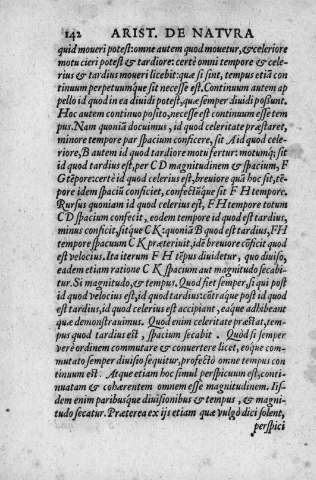 142 ARIST. DE NATVRA
quid moueri potest: omne autem quod mouetur, & celeriore
motu cieri potest & tardiore: certè omni tempore & cele-
rius & tardius moueri licebit: quæ si sint, tempus etiã con
tinuum perpetuumque sit necesse est. Continuum autem ap
pello id quod in ea diuidi potest, quæ semper diuidi possunt.
Hoc autem continuo posito, necesse est continuum esse tem
pus. Nam quoniã docuimus, id quod celeritate præstaret,
minore tempore par spacium conficere, sit A id quod cele-
riore, B autem id quod tardiore motu fertur: motumq; sit
id quod tardius est, per C D magnitudinem & spacium, F
G tẽpore: certè id quod celerius est, breuiore quã hoc sit, tẽ-
pore idem spaciũ conficiet, confectũque sit F H tempore.
Rursus quoniam id quod celerius est, F H tempore totum
C D spacium confecit, eodem tempore id quod est tardius,
minus conficit, sitque C K: quoniã B quod est tardius, F H
tempore spacuum C K præteriuit, idẽ breuiore cõficit quod
est velocius. Ita iterum F H tẽpus diuidetur, quo diuiso,
eadem etiam ratione C K spacium aut magnitudo secabi
tur. Si magnitudo, & tempus. Quod fiet semper, si qui post
id quod velocius est, id quod tardius: cõtraque post id quod
est tardius, id quod celerius est accipiant, eaque adhibeant
quæ demonstrauimus. Quod enim celeritate præstat, tem-
pus quod tardius est, spacium secabit. Quòd si semper
verè ordinem commutare & conuertere licet, eoque com-
mutato semper diuisio sequitur, profectò omne tempus con
tinuum est. Atque etiam hoc simul perspicuum est, conti-
nuatam & cohærentem omnem esse magnitudinem. Iis-
dem enim paribusque diuisionibus & tempus, & magni-
tudo secatur. Præterea ex ijs etiam quæ vulgò dici solent,
perspici